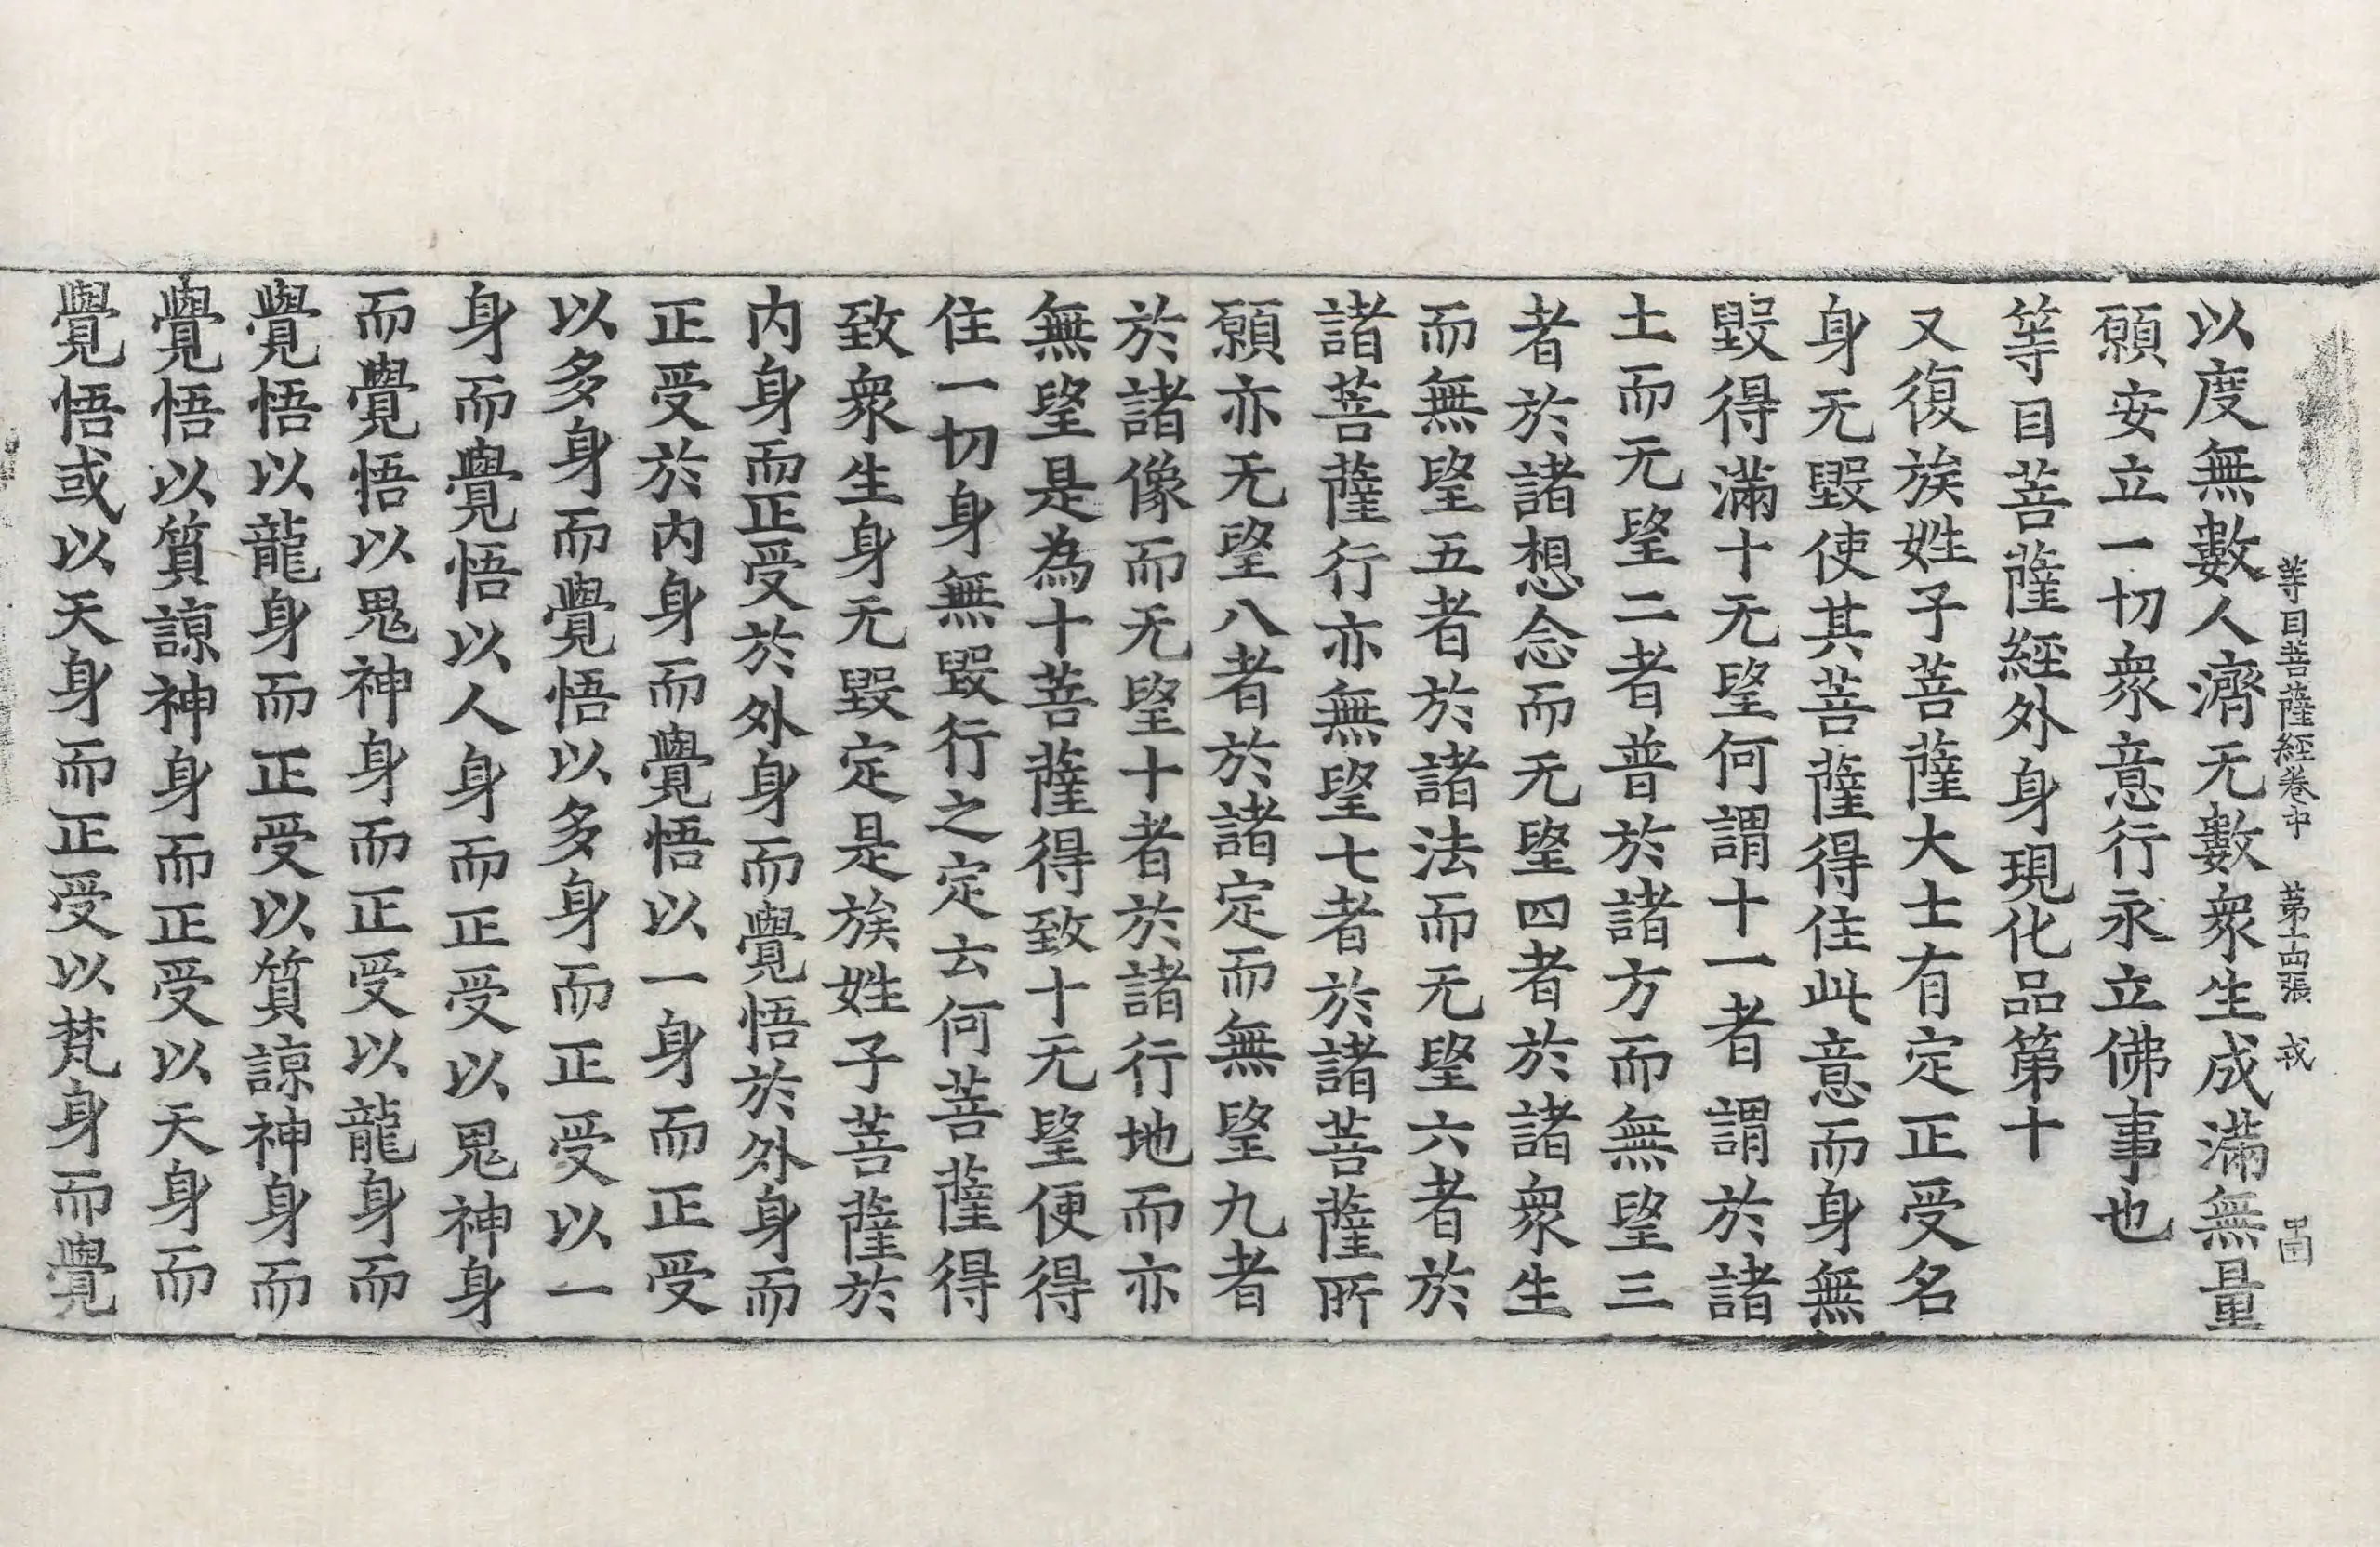 等目菩薩經卷中 第十四張 戎
以度無數人濟无數衆生成滿無量
願安立一切衆意行永立佛事也
等目菩薩經外身現化品第十
又復族姓子菩薩大士有定正受名
身无毀使其菩薩得住此意而身無
毀得滿十无望何謂十一者謂於諸
土而无望二者普於諸方而無望三
者於諸想念而无望四者於諸衆生
而無望五者於諸法而无望六者於
諸菩薩行亦無望七者於諸菩薩所
願亦无望八者於諸定而無望九者
於諸像而无望十者於諸行地而亦
無望是為十菩薩得致十无望便得
住一切身無毀行之定云何菩薩得
致衆生身无毀定是族姓子菩薩於
内身而正受於外身而覺悟於外身而
正受於内身而覺悟以一身而正受
以多身而覺悟以多身而正受以一
身而覺悟以人身而正受以鬼神身
而覺悟以鬼神身而正受以龍身而
覺悟以龍身而正受以質諒神身而
覺悟以質諒神身而正受以天身而
覺悟或以天身而正受以梵身而覺